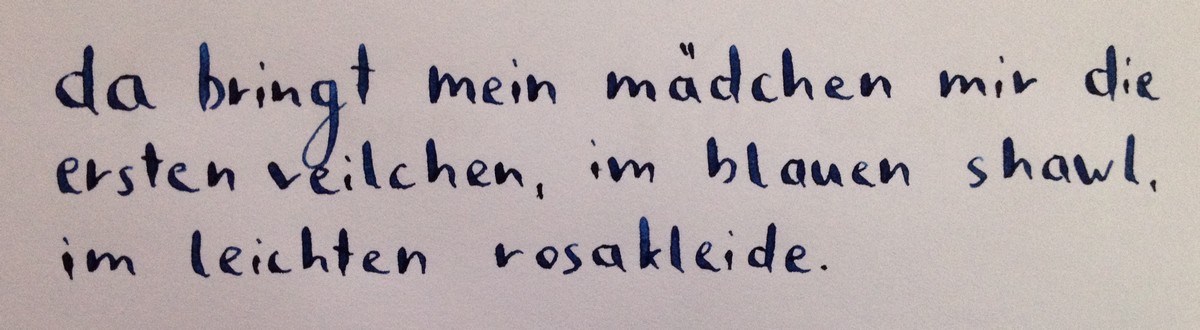 da bringt mein mädchen mir die
ersten veilchen, im blauen shawl,
im leichten rosakleide.